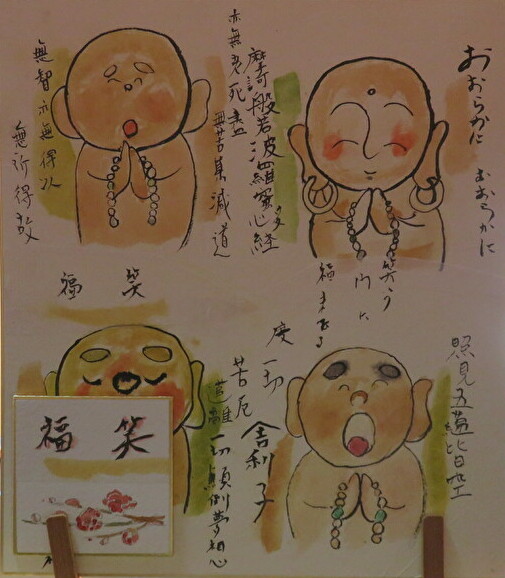 おおらかに
おおらかに
摩訶般若波羅蜜多心経
亦無老死盡
無苦集滅道
無智亦無得以
無所得故
笑う
門に
福きたる
笑
福
照見五蘊皆空
度一切
苦厄
舎利子
遠離
一切顛倒夢想
笑
福